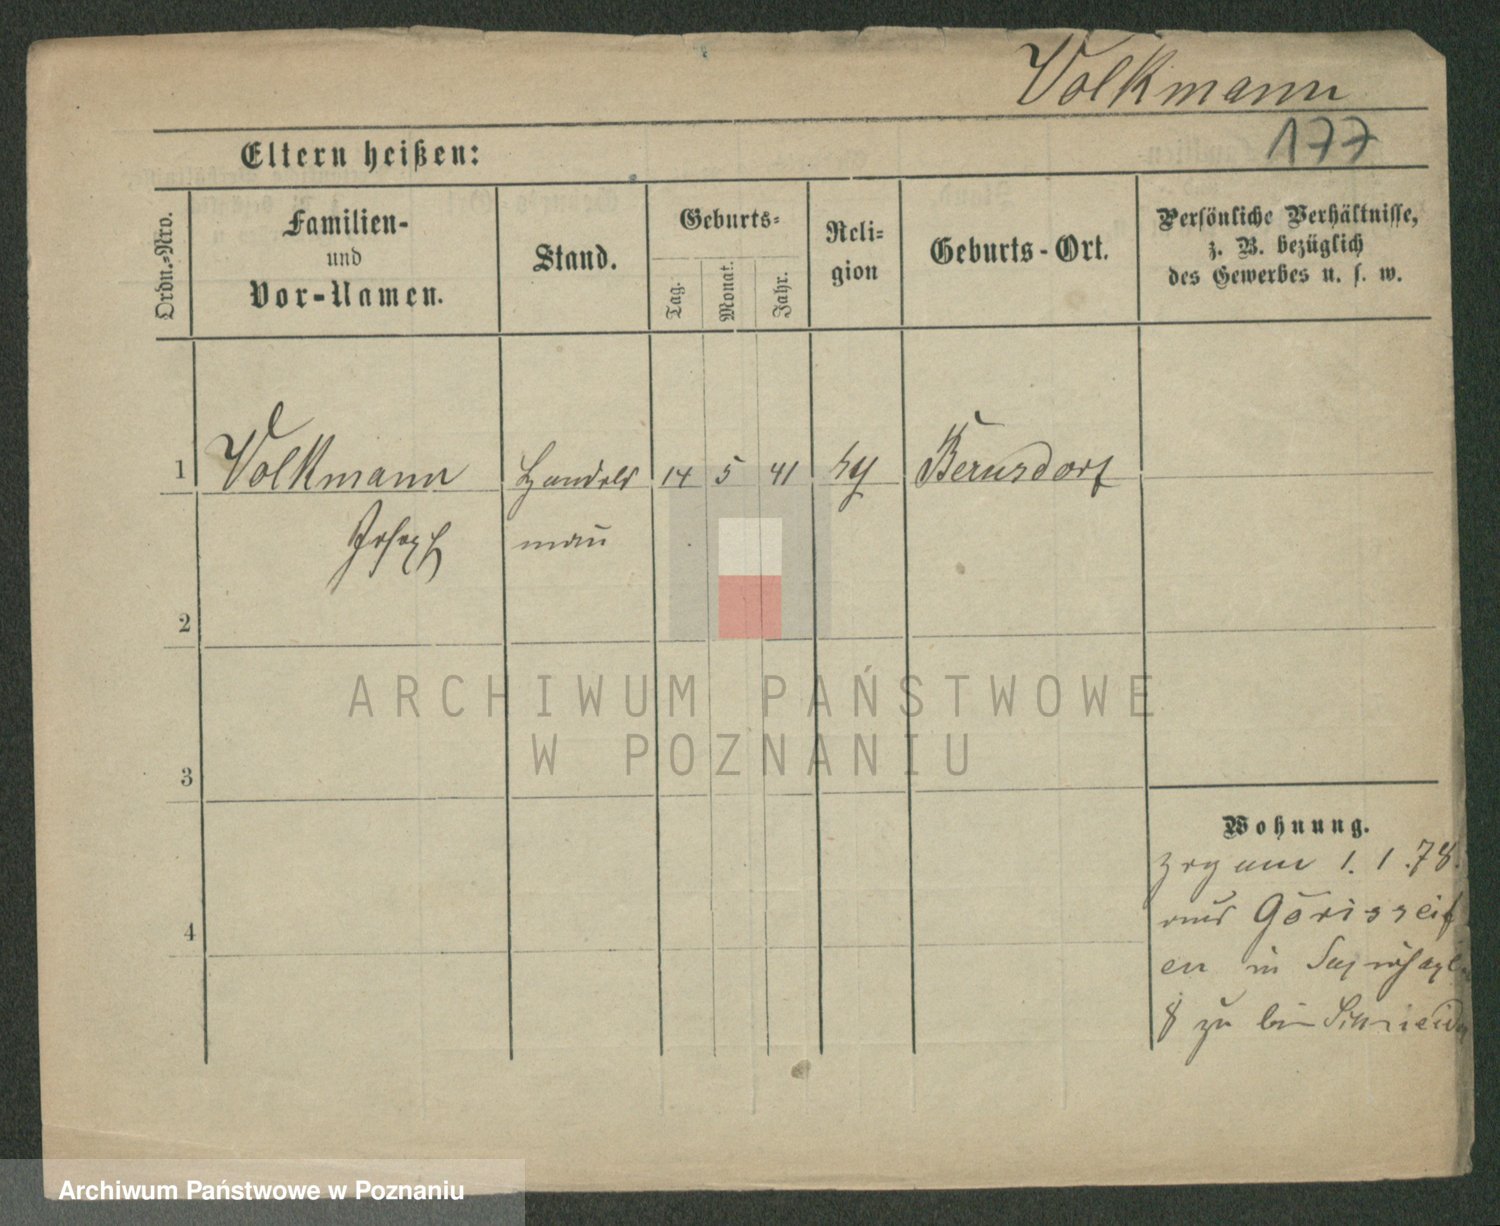 Volkmann
177
Eltern heißen:
Ordn.-Nro.
Familien-
und
Vor-Namen.
Stand.
Geburts-
Tag.
Monat.
Jahr.
Reli-
gion
Geburts-Ort.
Persönliche Verhältnisse,
z. B. bezüglich
des Gewerbes u. s. w.
1 Volkmann Handels 14 5 41 Bernsdorf
Joseph mañ
2
3
4
Wohnung.
zog am 1. 1. 78.
aus Görisseif
en in
8 zu bei Schneider
ARCHIWUM PAŃSTWOWE
W POZNANIU
Archiwum Państwowe w Poznaniu